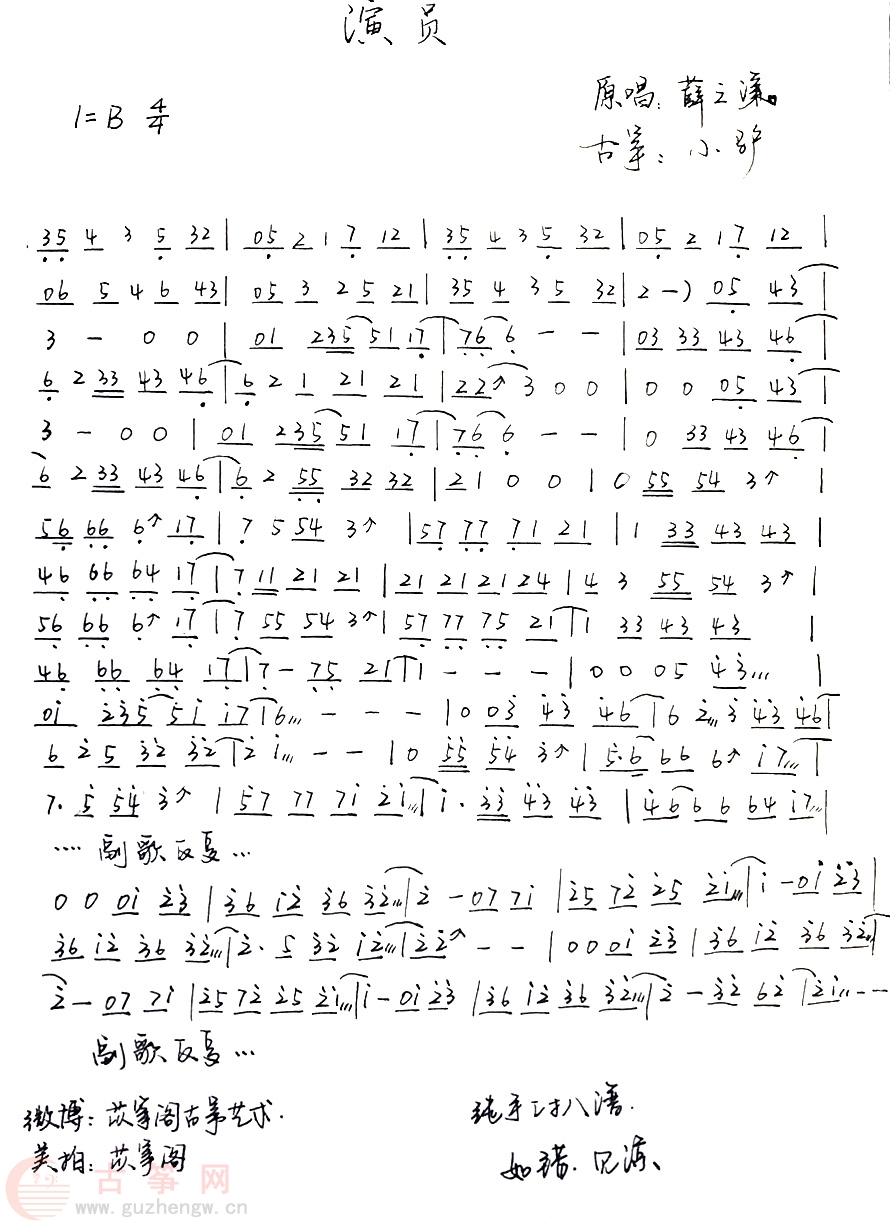 演员
原唱:薛之谦。
1=B 4/4
古筝:小驴
35 4 3 5 32 | 05 2 1 7 12 | 35 4 3 5 32 | 05 2 1 7 12 |
06 5 4 6 43 | 05 3 2 5 21 | 35 4 3 5 32 | 2 —) 05 43 |
3 — 0 0 | 01 235 51 17 | 76 6 — — | 03 33 43 46 |
6 2 33 43 46 | 6 2 1 21 21 | 22↗ 3 0 0 | 0 0 05 43 |
3 — 0 0 | 01 235 51 17 | 76 6 — — | 0 33 43 46 |
6 2 33 43 46 | 6 2 55 32 32 | 21 0 0 | 0 55 54 3↗ |
56 66 6↗ 17 | 7 5 54 3↗ | 57 77 71 21 | 1 33 43 43 |
46 66 64 17 | 7 11 21 21 | 21 21 21 24 | 4 3 55 54 3↗ |
56 66 6↗ 17 | 7 55 54 3↗ | 57 77 75 21 | 1 33 43 43 |
46 66 64 17 | 7 — 75 21 | 1 — — — | 0 0 05 43... |
01 235 51 17 | 6... — — — | 0 03 43 46 | 6 2,,, 3 43 46 |
6 2 5 32 32 | 2 1,,, — — | 0 55 54 3↗ | 5·6 66 6↗ 17,,, |
7· 5 54 3↗ | 57 77 71 21,,, | 1· 33 43 43 | 46 6 6 64 17,,, |
···· 副歌反复···
0 0 01 23 | 36 12 36 32,,, | 2 — 07 71 | 25 72 25 21,,, | 1 — 01 23 |
36 12 36 32,,, | 2· 5 32 12,,, | 22↗ — — | 0 0 01 23 | 36 12 36 32,,, |
2 — 07 71 | 25 72 25 21,,, | 1 — 01 23 | 36 12 36 32,,, | 2 — 32 62 | 21,,, — —
副歌反复···
微博:苡筝阁古筝艺术.
纯手工扒谱.
美拍:苡筝阁
如错.见谅、
古筝网
www.guzhengw.cn